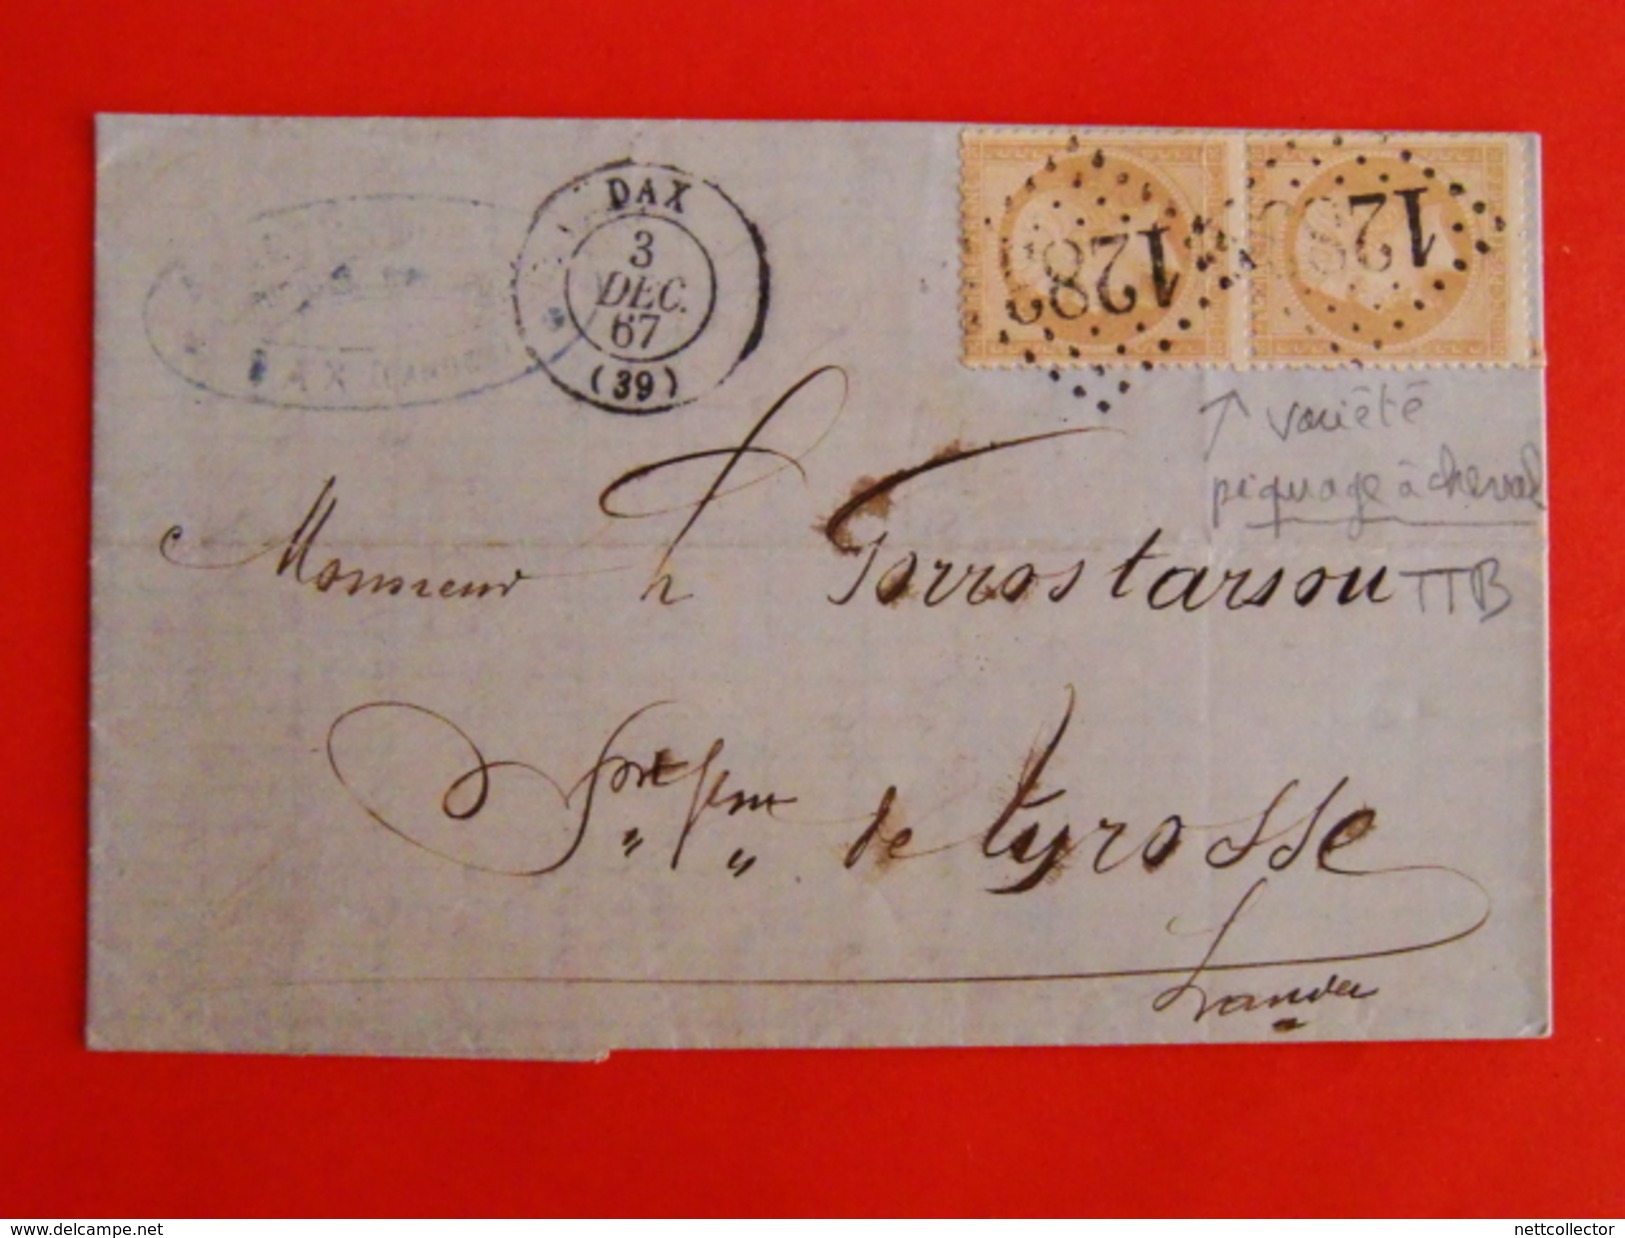 DAX
3
DEC.
67
(39)
DAX
1282
128
variété
piquage à cheval
TTB
Monsieur h Gorrostarsou
de tyrosse
Landes
www.delcampe.net
nettcollector